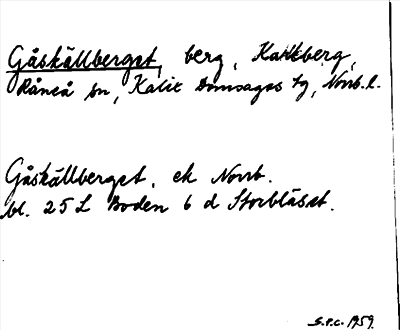 Gåskällberget, berg, Karlsberg,
Råneå sn, Kalix Domsagas tg, Norrb. l.
Gåskällberget. ek Norrb.
bl. 25 L Boden 6 d Storblåset.
S.P.C. 1959.